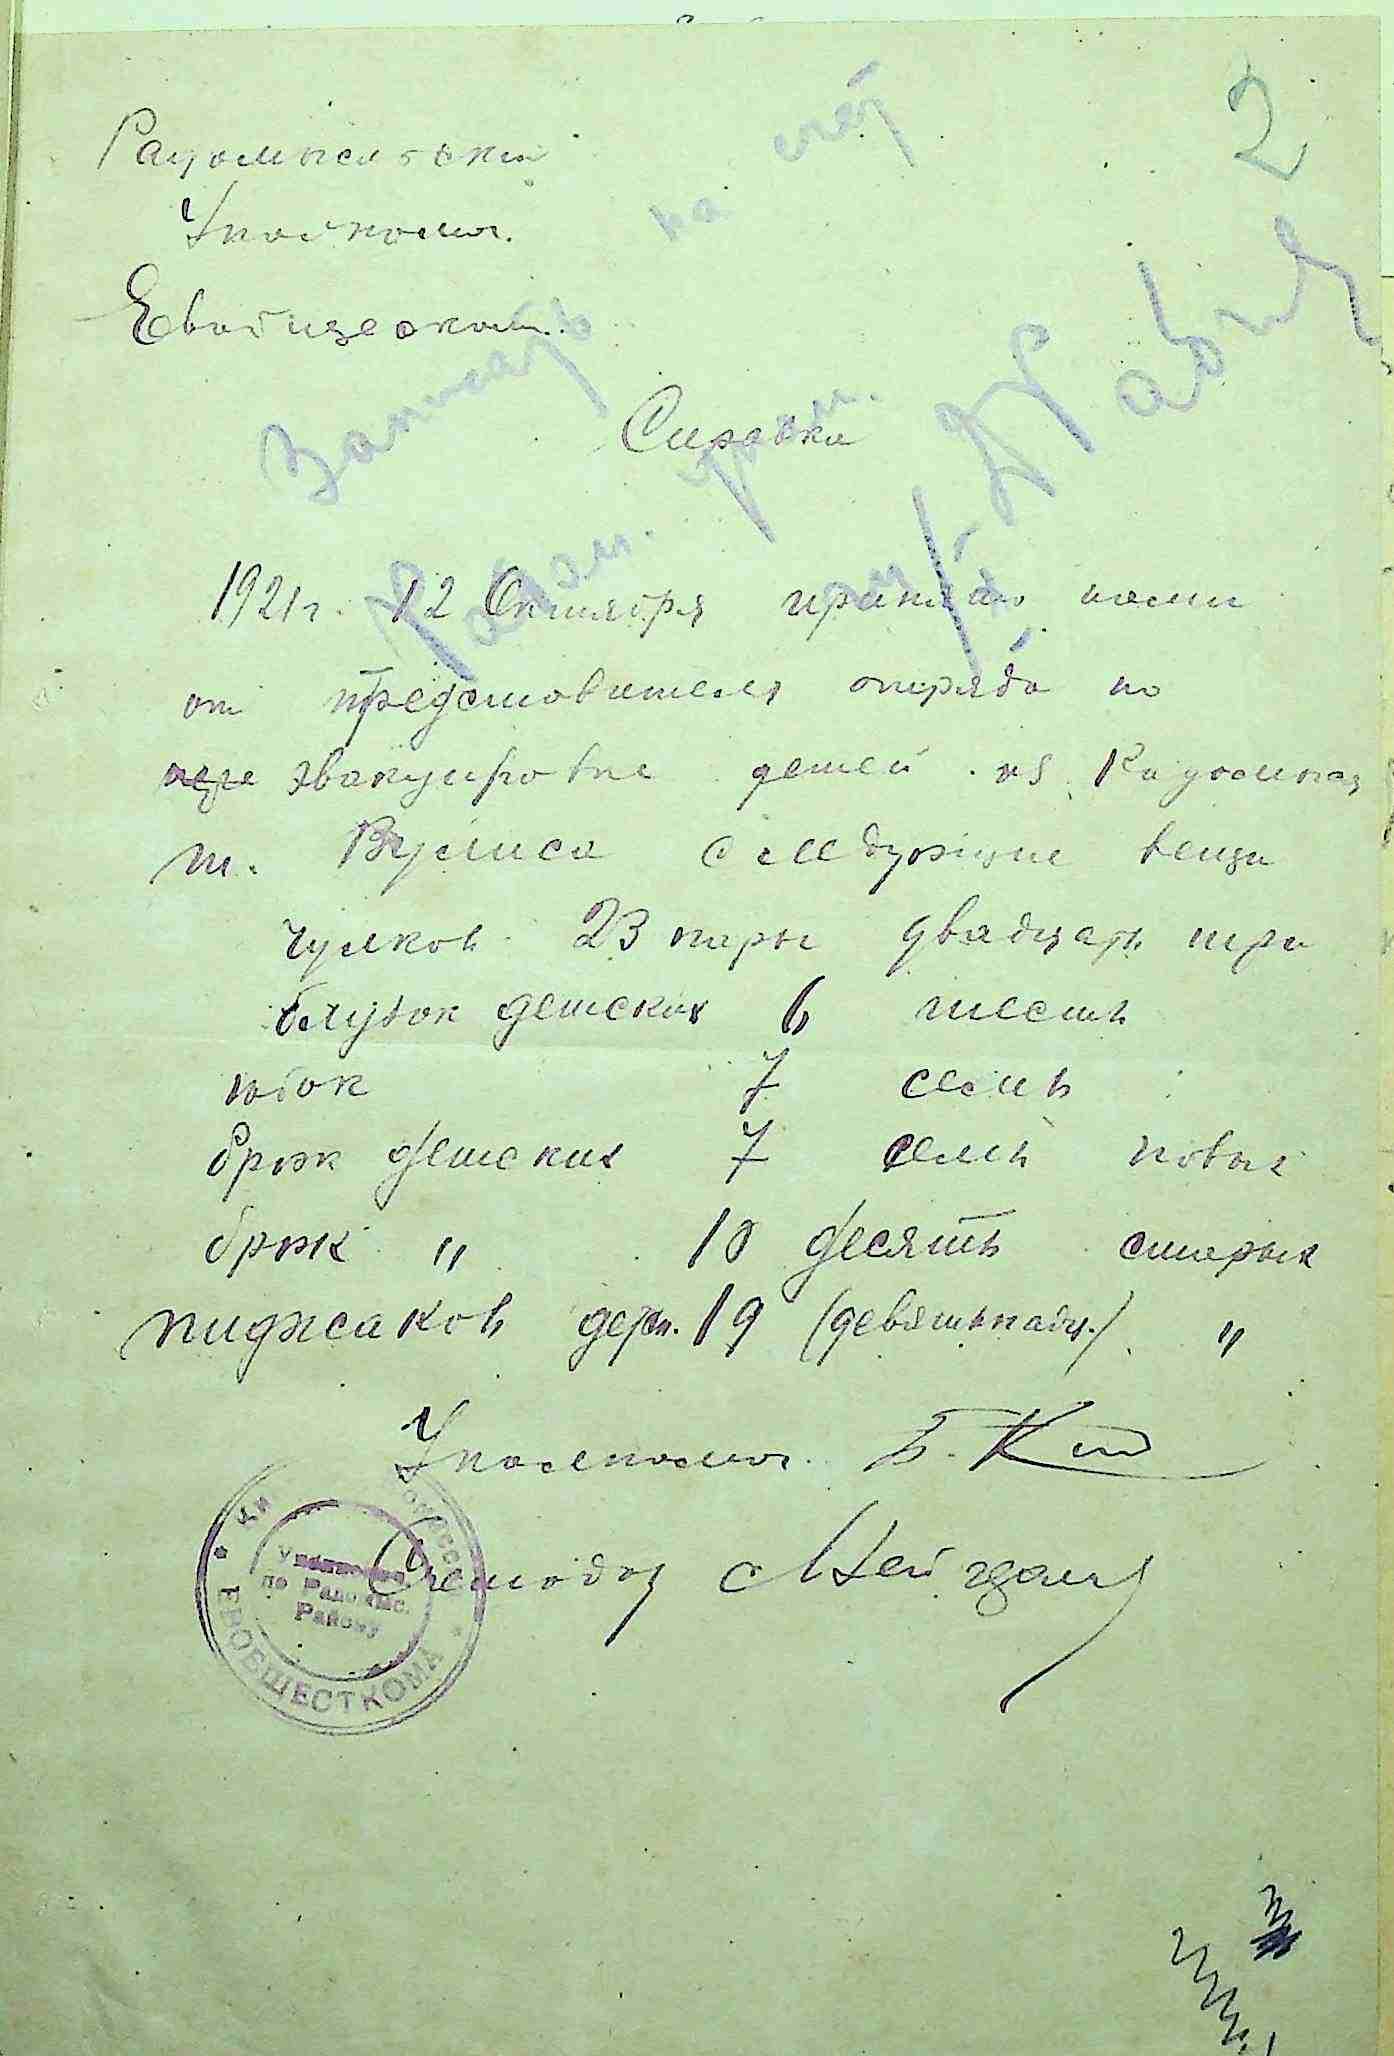 2
Радомысльский
Уполномоч.
Евобщесткom.
Записать на счёт
Радом. район.
Справка
1921 г. 12 Октября принято нами
от представителя отряда по
эвакуировке детей из Радомысля
т. Вулиса следующие вещи
чулков 23 пары двадцать три
блузок детских 6 шесть
юбок 7 семь
брюк детских 7 семь новых
брюк " 10 десять старых
пиджаков детск. 19 (девятьнадц.) "
Уполномоч. Б. Кит
Счетовод
Уполномоч.
по Радомыс.
Району
ЕВОБЩЕСТКОМА